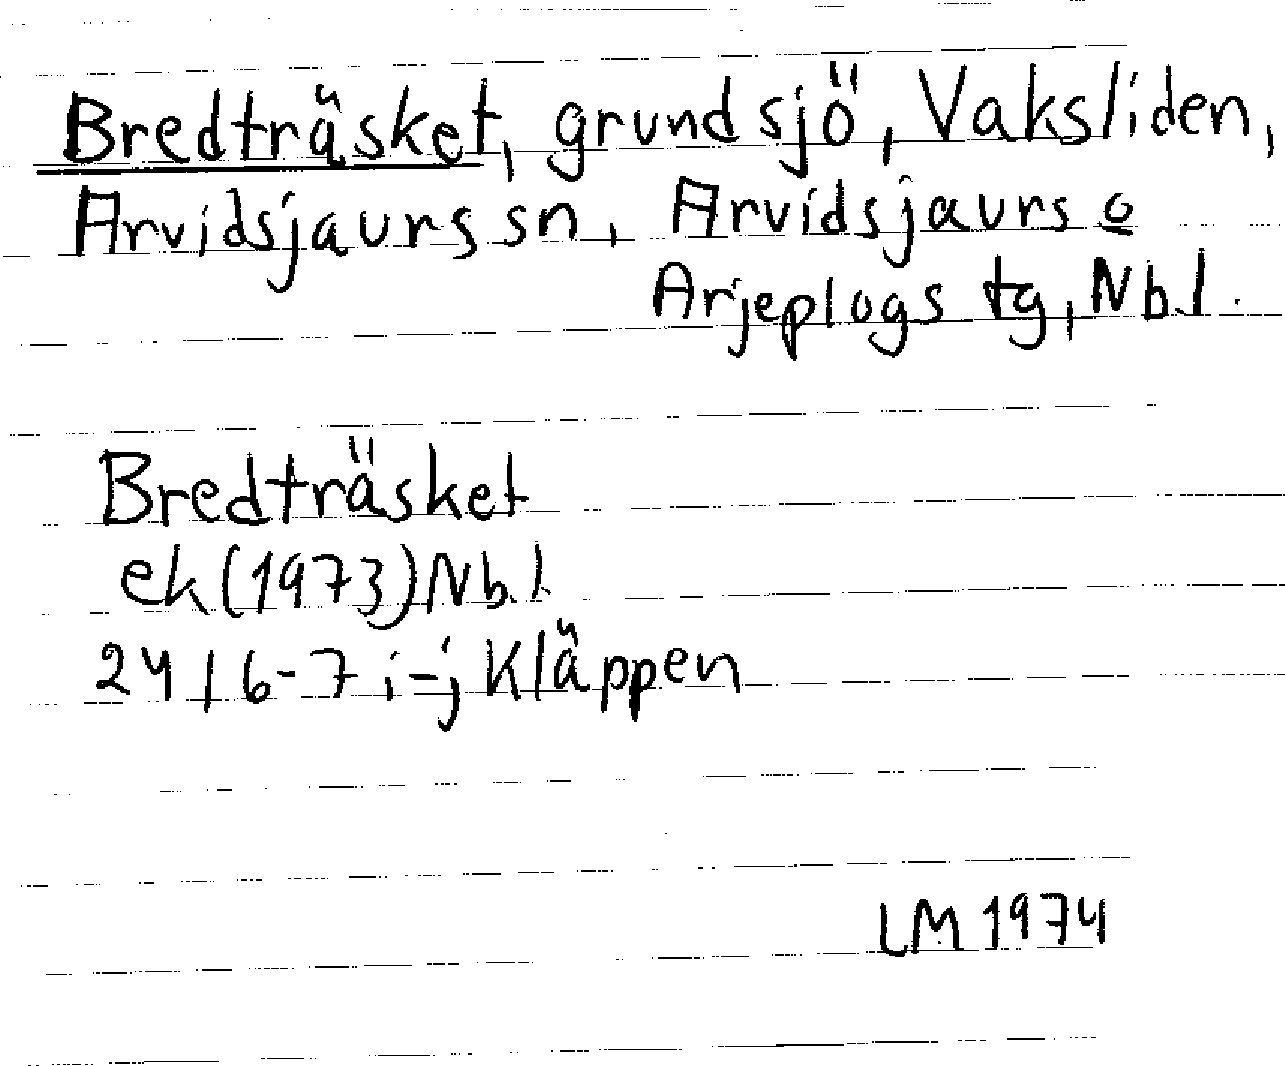 Bredträsket, grundsjö, Vaksliden,
Arvidsjaurs sn, Arvidsjaurs o
Arjeplogs tg, Nb.l.
Bredträsket
ek (1973) Nb.l.
24 I 6-7 i-j Kläppen
LM 1974